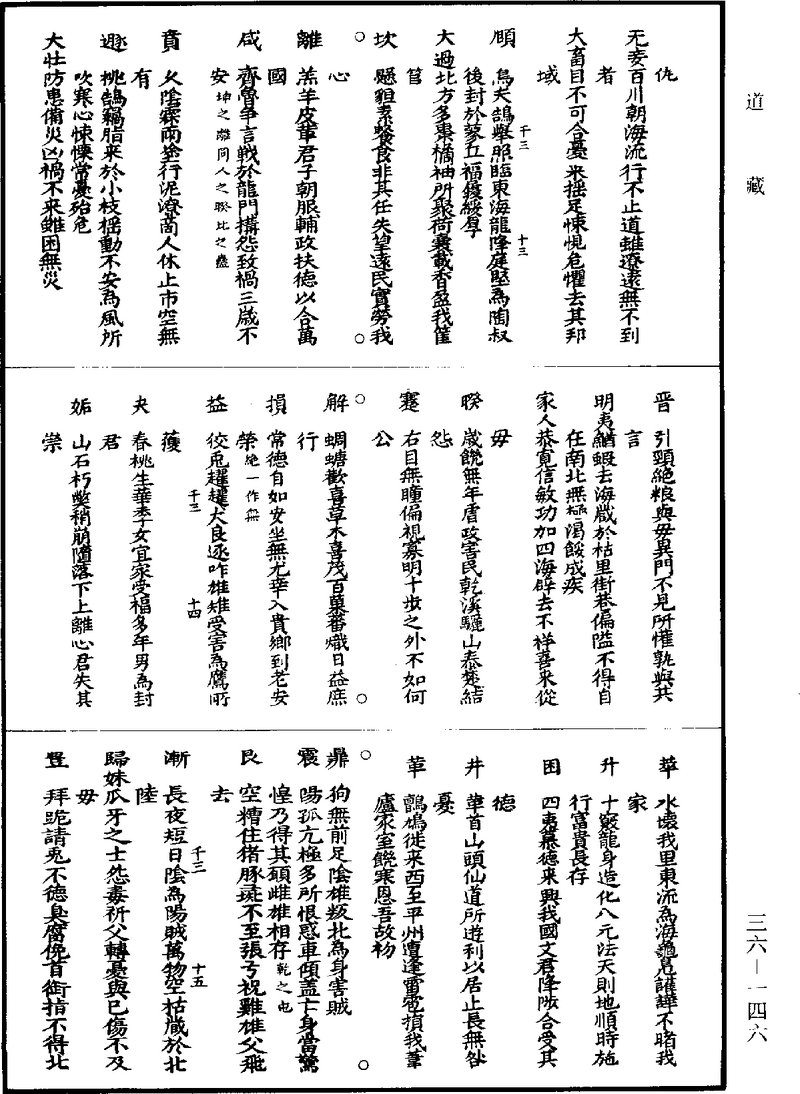 道藏
仇
无妄百川朝海流行不止道雖遼遠無不到
者
大畜目不可合憂來搖足悚惕危懼去其邦
域
頤　烏夫鵠舉照臨東海龍降庭堅為陶叔
後封於蓼五福履綏厚
千三　十三
大過北方多棗橘柚所聚荷囊載香盈我筐
筥
坎　懸貆素餐食非其任失望遠民實勞我
心
離　羔羊皮革君子朝服輔政扶德以合萬
國
咸　齊魯爭言戰於龍門搆怨致禍三歲不
安坤之離同人之睽比之蠱
賁　久陰霖雨塗行泥潦商人休止市空無
有
遯　桃鵠竊脂來於小枝搖動不安為風所
吹寒心悚慄常憂殆危
大壯防患備災凶禍不來雖困無災
晉　引頸絕粮與毋異門不見所懽孰與共
言
明夷鰌蝦去海歲於枯里街巷偏隘不得自
在南北無極渴餒成疾
家人恭寬信敏功加四海辟去不祥喜來從
毋
睽　歲饑無年虐政害民乾溪驪山泰楚結
怨
蹇　右目無瞳偏視寡明十步之外不如何
公
解　蜩螗歡喜草木喜茂百菓蕃熾日益庶
行
損　常德自如安坐無尤幸入貴鄉到老安
榮絶一作無
益　佼兎趯趯犬良逐咋雄雉受害為鷹所
獲
千三　十四
夬　春桃生華季女宜家受福多年男為封
君
姤　山石朽弊稍崩墮落下上離心君失其
崇
萃　水壞我里東流為海龜鳧讙譁不睹我
家
升　十龜龍身造化八元法天則地順時施
行富貴長存
困　四夷慕德來興我國文君降陟合受其
德
井　華首山頭仙道所遊利以居止長無咎
憂
革　鸛鳩徙來西至平州遭逢雷電損我葦
廬家室饑寒思吾故初
鼎　狗無前足陰雄叛北為身害賊
震　陽孤亢極多所恨惑車傾蓋亡身當驚
惶乃得其願雌雄相存乾之屯
艮　空糟住猪豚彘不至張弓祝雞雄父飛
去
漸　長夜短日陰為陽賊萬物空枯歲於北
陸
千三　十五
歸妹瓜牙之士怨毒祈父轉憂與已傷不及
毋
豐　拜跪請兎不德臭腐俛首銜指不得北
三六—一四六